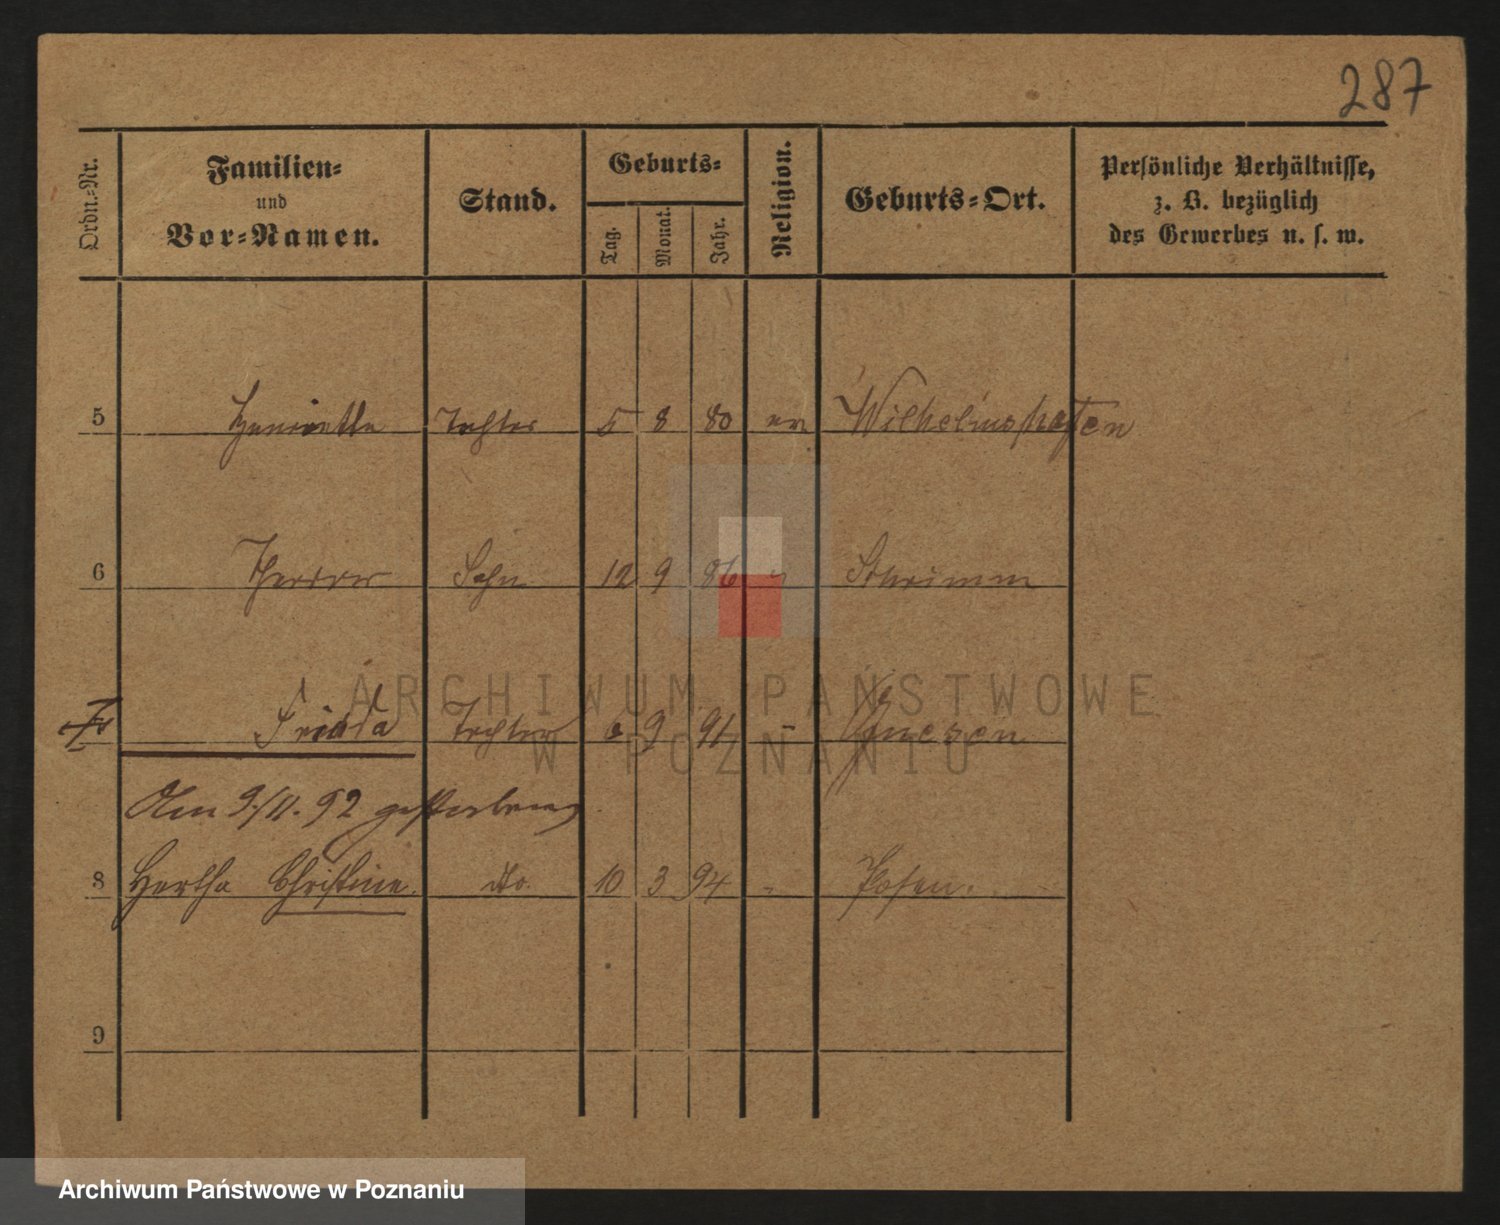 287
Ordn.-Nr.
Familien-
und
Vor-Namen.
Stand.
Geburts-
Tag.
Monat.
Jahr.
Religion.
Geburts-Ort.
Persönliche Verhältnisse,
z. B. bezüglich
des Gewerbes u. s. w.
5 Henriette Tochter 5 8 80 ev Wilhelmshafen
6 Sohn 12 9 86 " Schrimm
7 Frieda Tochter 9 91 - Gnesen
Am 9./11. 92 gestorben
8 Hertha Christine. do. 10 3 94 - Posen.
9
ARCHIWUM PAŃSTWOWE
W POZNANIU
Archiwum Państwowe w Poznaniu